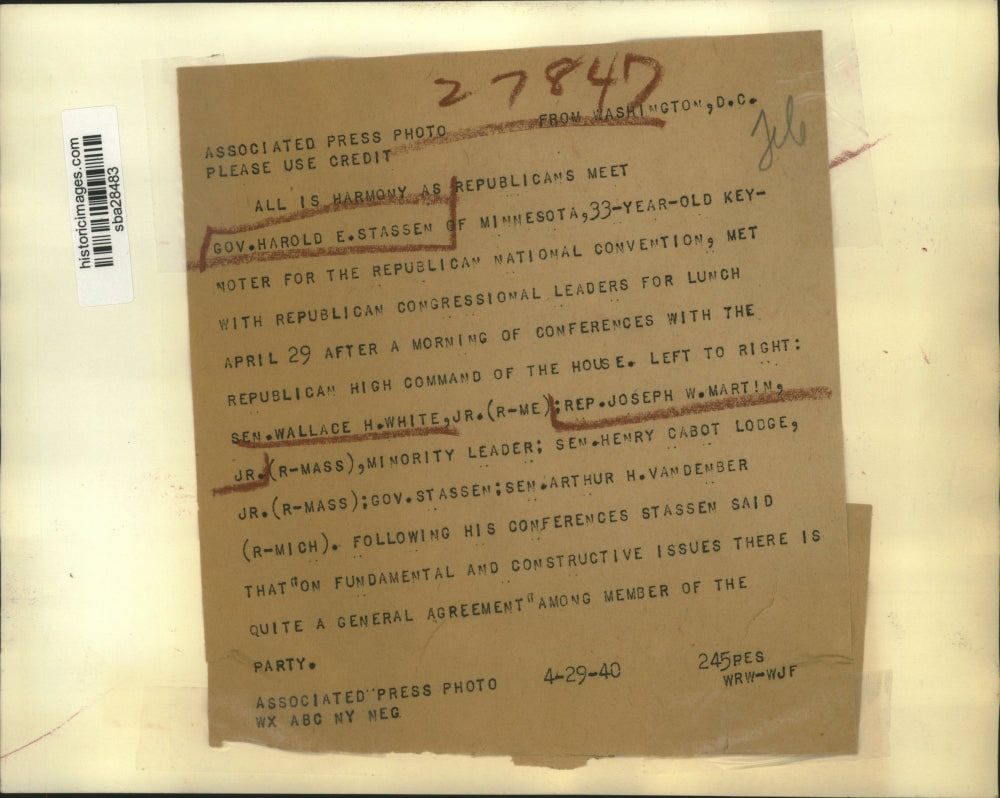 historicimages.com
sba28483
27847
ASSOCIATED PRESS PHOTO FROM WASHINGTON,D.C.
PLEASE USE CREDIT
ALL IS HARMONY AS REPUBLICANS MEET
GOV.HAROLD E.STASSEN OF MINNESOTA,33-YEAR-OLD KEY-
NOTER FOR THE REPUBLICAN NATIONAL CONVENTION, MET
WITH REPUBLICAN CONGRESSIONAL LEADERS FOR LUNCH
APRIL 29 AFTER A MORNING OF CONFERENCES WITH THE
REPUBLICAN HIGH COMMAND OF THE HOUSE. LEFT TO RIGHT:
SEN.WALLACE H.WHITE,JR.(R-ME);REP.JOSEPH W.MARTIN,
JR.(R-MASS),MINORITY LEADER; SEN.HENRY CABOT LODGE,
JR.(R-MASS);GOV.STASSEN;SEN.ARTHUR H.VANDENBER
(R-MICH). FOLLOWING HIS CONFERENCES STASSEN SAID
THAT"ON FUNDAMENTAL AND CONSTRUCTIVE ISSUES THERE IS
QUITE A GENERAL AGREEMENT"AMONG MEMBER OF THE
PARTY.
ASSOCIATED PRESS PHOTO 4-29-40 245PES
WX ABC NY NEG WRW-WJF